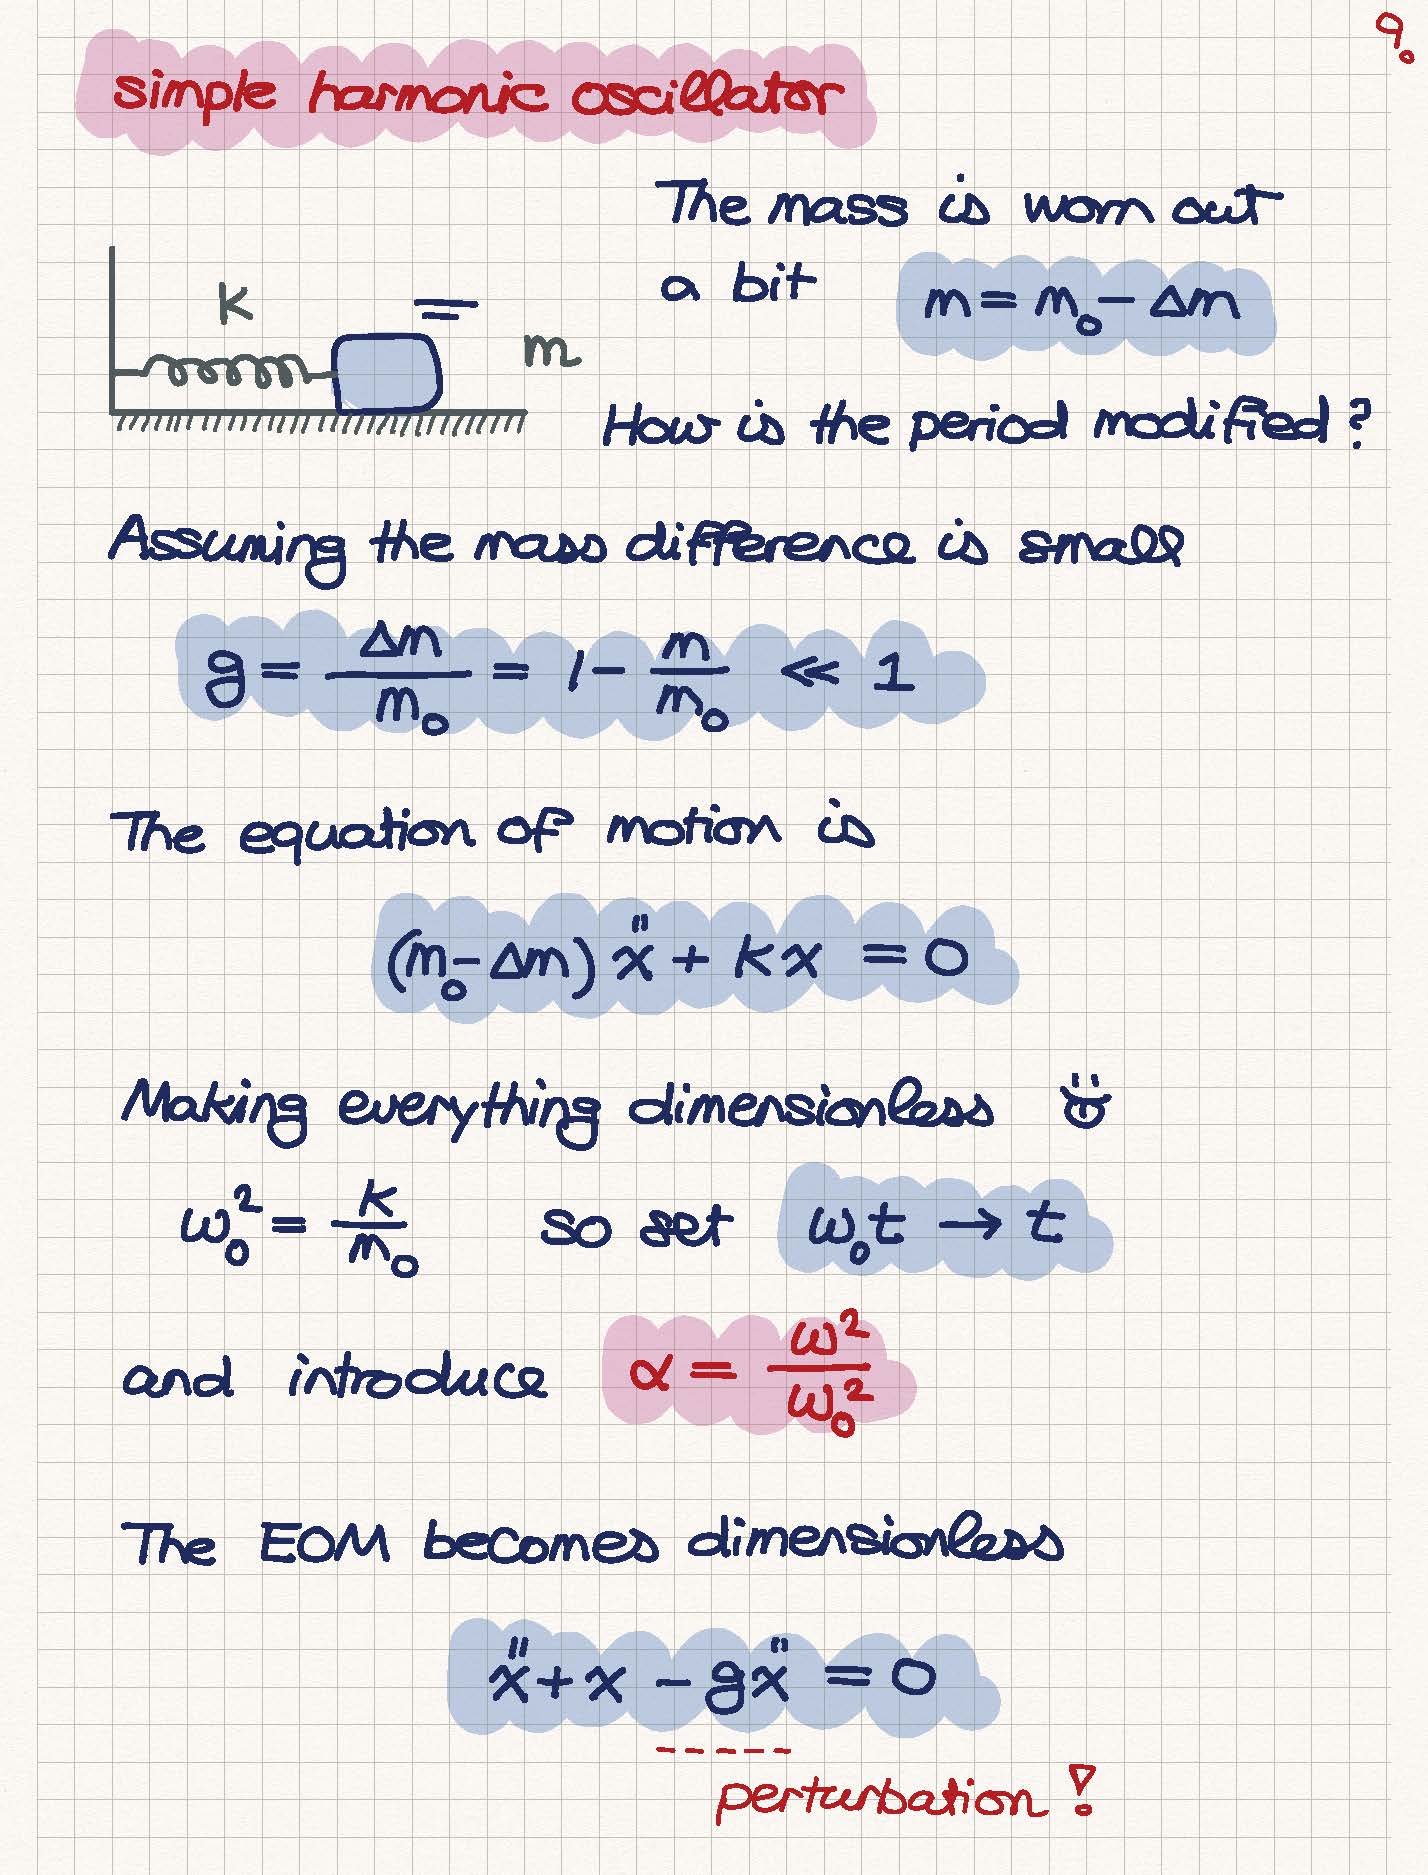 9.
simple harmonic oscillator
The mass is worn out
a bit m = m₀ - Δm
k
m
How is the period modified?
Assuming the mass difference is small
g = Δm/m₀ = 1 - m/m₀ ≪ 1
The equation of motion is
(m₀ - Δm) ẍ + kx = 0
Making everything dimensionless
ω₀² = k/m₀ so set ω₀t → t
and introduce α = ω²/ω₀²
The EOM becomes dimensionless
ẍ + x - gẍ = 0
perturbation!